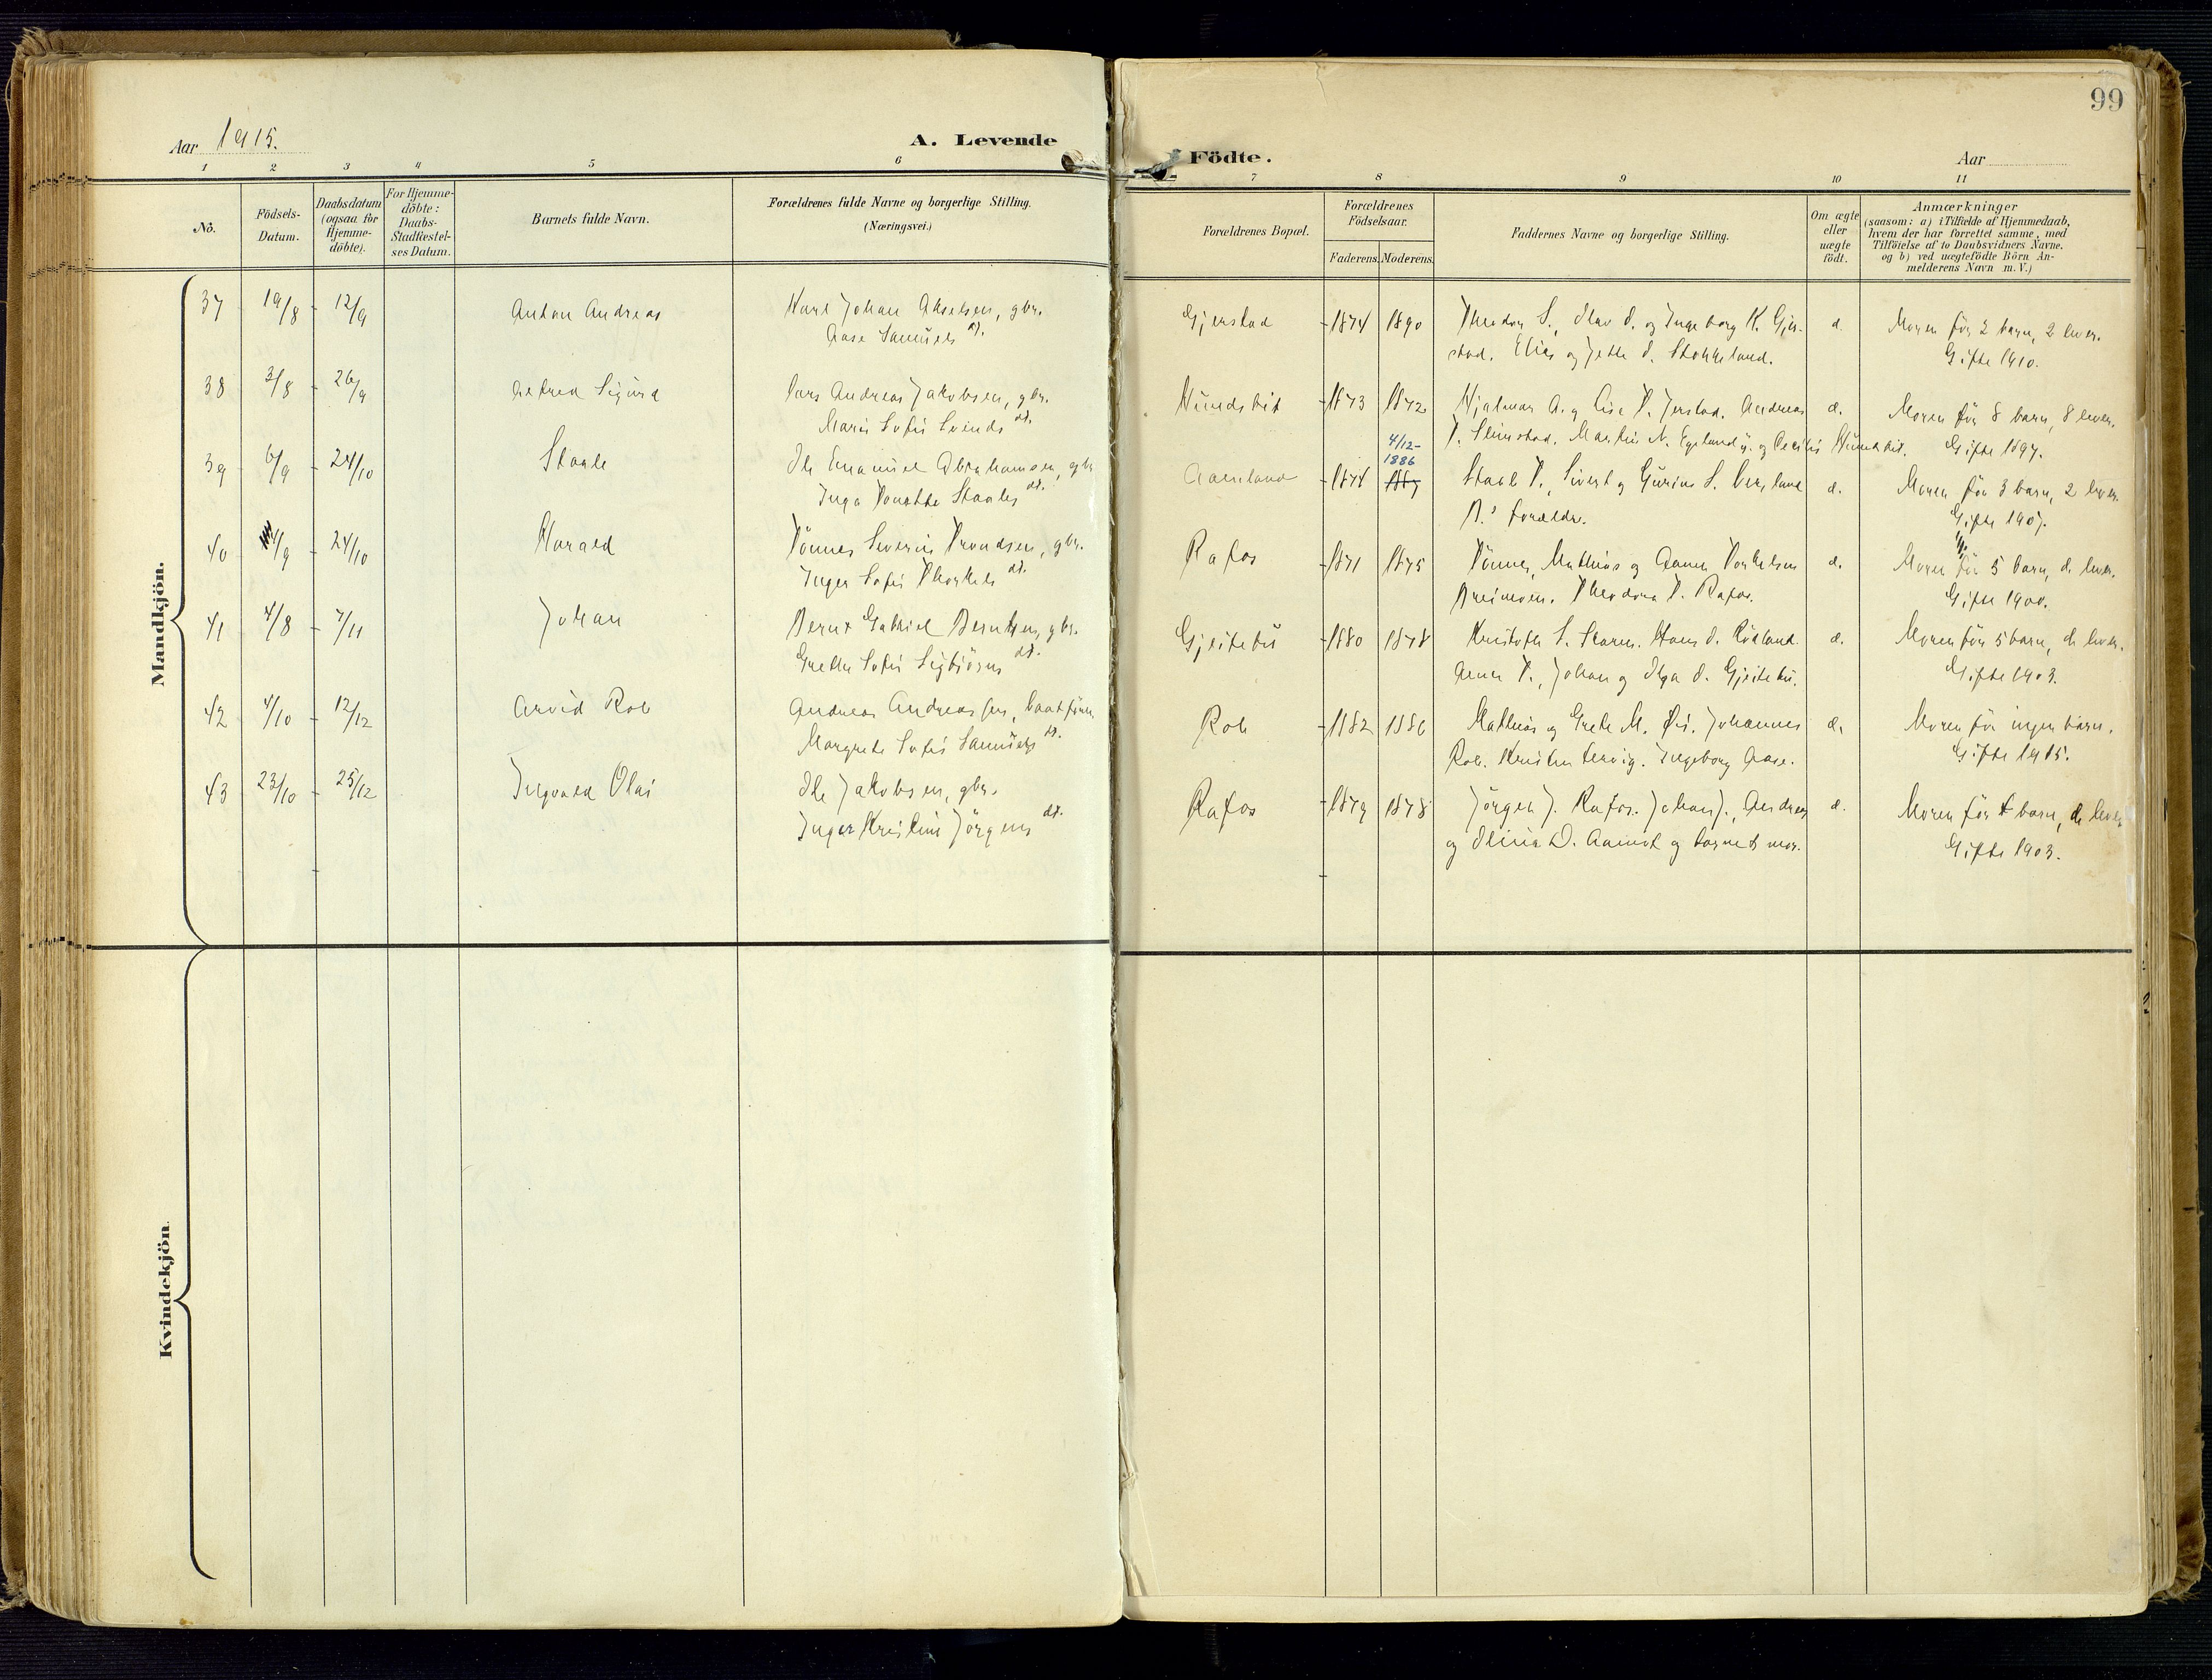 99
Aar 1915.
A. Levende
Födte.
Aar
1 2 3 4 5 6
7 8 9 10 11
No.
Födsels-
Datum.
Daabsdatum
(ogsaa for
Hjemme-
döbte).
For Hjemme-
döbte:
Daabs-
Stadfæstel-
ses Datum.
Barnets fulde Navn.
Forældrenes fulde Navne og borgerlige Stilling.
(Næringsvei.)
Forældrenes Bopæl.
Forældrenes
Födselsaar.
Faderens. Moderens.
Faddernes Navne og borgerlige Stilling.
Om ægte
eller
uægte
födt.
Anmærkninger
(saasom: a) i Tilfælde af Hjemmedaab,
hvem der har forrettet samme, med
Tilföielse af to Daabsvidners Navne.
og b) ved uægtefödte Börn An-
melderens Navn m. V.)
Mandkjön.
37 19/8 - 12/9 Anton Andreas Karl Johan Akselsen, gbr. Gjerstad - 1874 1890 Theodor S., Olav O. og Ingeborg K. Gjer- æ. Moren før 2 barn, 2 lever.
Aase Samuels dt. stad. Elias og Jette O. Stokkeland. Gifte 1910.
38 3/8 - 26/9 Alfred Sigurd Lars Andreas Jakobsen, gbr. - 1873 1872 Hjalmar A. og Lise T. Jerstad. Andreas æ. Moren før 8 barn, 8 lever.
Marie Sofie Svends dt. Gifte 1897.
4/12-
1886
39 6/9 - 24/10 Staale Ole Emanuel Abrahamsen, gbr - 1874 Staale T., Sivert og Gurine S. æ. Moren før 3 barn, 2 lever.
Inga Staales dt. B.s forældre. Gifte 1907.
40 /9 - 24/10 Harald Tönnes Severin Trondsen, gbr. Rafos - 1871 1875 Tönnes, Mathias og Anna Torkelsen æ. Moren før 5 barn, de lever.
Inger Sofie Thorkels dt. Theodora T. Rafos. Gifte 1900.
41 4/8 - 7/11 Johan Bernt Gabriel Berntsen, gbr. Gjeitebu - 1880 1878 Kristofer S. Hans O. Rödland. æ. Moren før 5 barn, de lever.
Grethe Sofie Sigbjörns dt. Anna T., Johan og Olga O. Gjeitebu. Gifte 1903.
42 4/10 - 12/12 Arvid Rob Andreas Andreassen, baatförer Rob - 1882 1886 Mathias og Grete M. Øie. Johannes æ. Moren før ingen barn.
Margrete Sofie Samuels dt. Rob. Ingeborg Aase. Gifte 1915.
43 23/10 - 25/12 Ingvald Olai Ole Jakobsen, gbr. Rafos - 1879 1878 Jörgen J. Rafos. Johan J., Andreas æ. Moren før 4 barn, de lever
Inger Kristine Jörgens dt. og Olivia D. Aamot og barnets mor. Gifte 1903.
Kvindekjön.